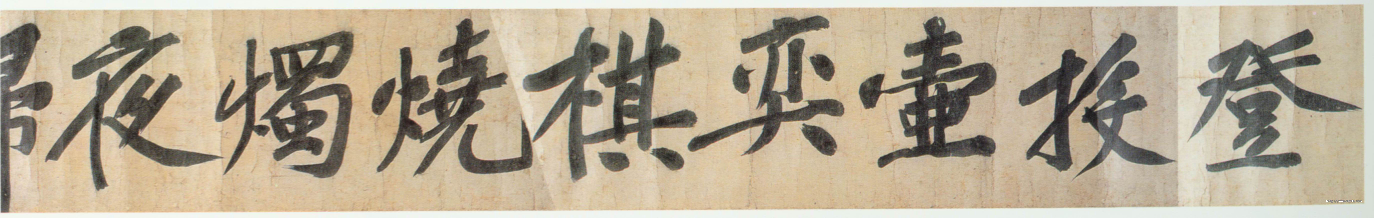 登投壺奕棋燒燭夜